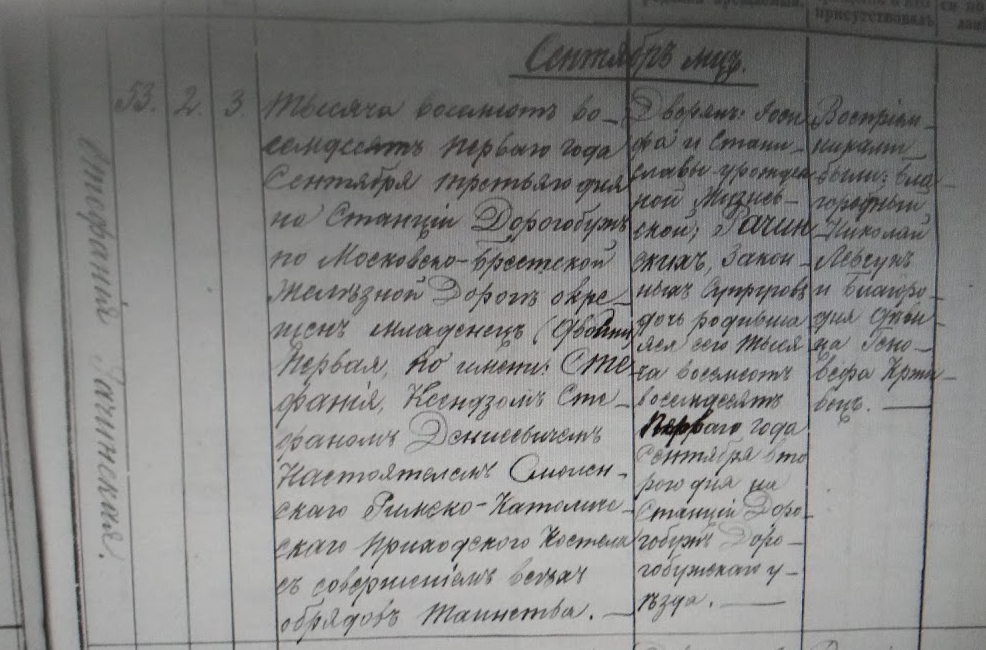 присутствовалъ
Сентябрь мцъ.
Стефанія Рачинская.
53.
2.
3.
Тысяча восемьсотъ во-
семдесятъ перваго года
Сентября третьяго дня
на Станціи Дорогобужъ
по Московско-Брестской
Желѣзной Дорогѣ окре-
щенъ младенецъ (двойни)
Первая, по имени: Сте-
фанія, Ксендзомъ Сте-
фаномъ Денисевичемъ
Настоятелемъ Смолен-
скаго Римско-Католиче-
скаго Приходского Костела
съ совершеніемъ всѣхъ
обрядовъ Таинства. —
Дворянъ: Іоси
фа и Стани-
славы урожден
ной
ской; Рачин
скихъ, Закон-
ныхъ Супруговъ
дочь родивша
яся сего Тыся
ча восемсотъ
восемдесятъ
Перваго года
Сентября вто
рого дня на
Станціи Доро-
гобужъ Доро-
гобужскаго у-
ѣзда. —
Воспріем-
никами
были: бла-
городный
Николай
и благоро-
дная
на Гено-
вефа Кржи-
вецъ. —